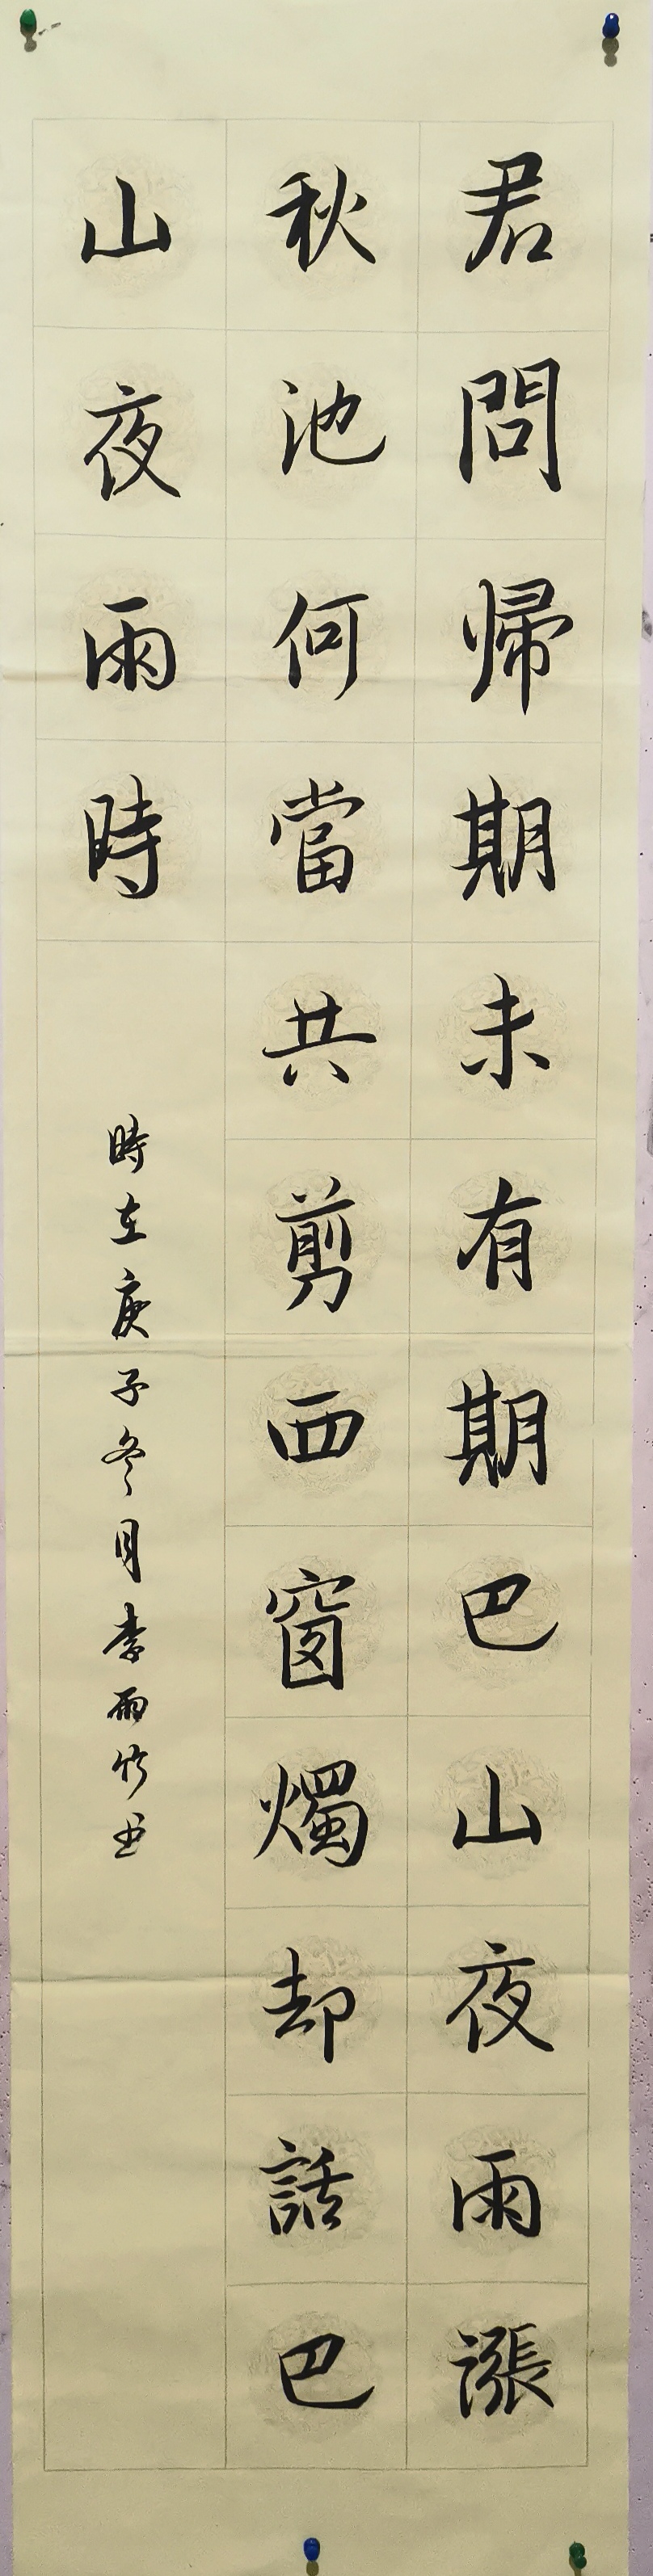 君問歸期未有期巴山夜雨漲
秋池何當共剪西窗燭却話巴
山夜雨時
時在庚子冬月李雨竹書